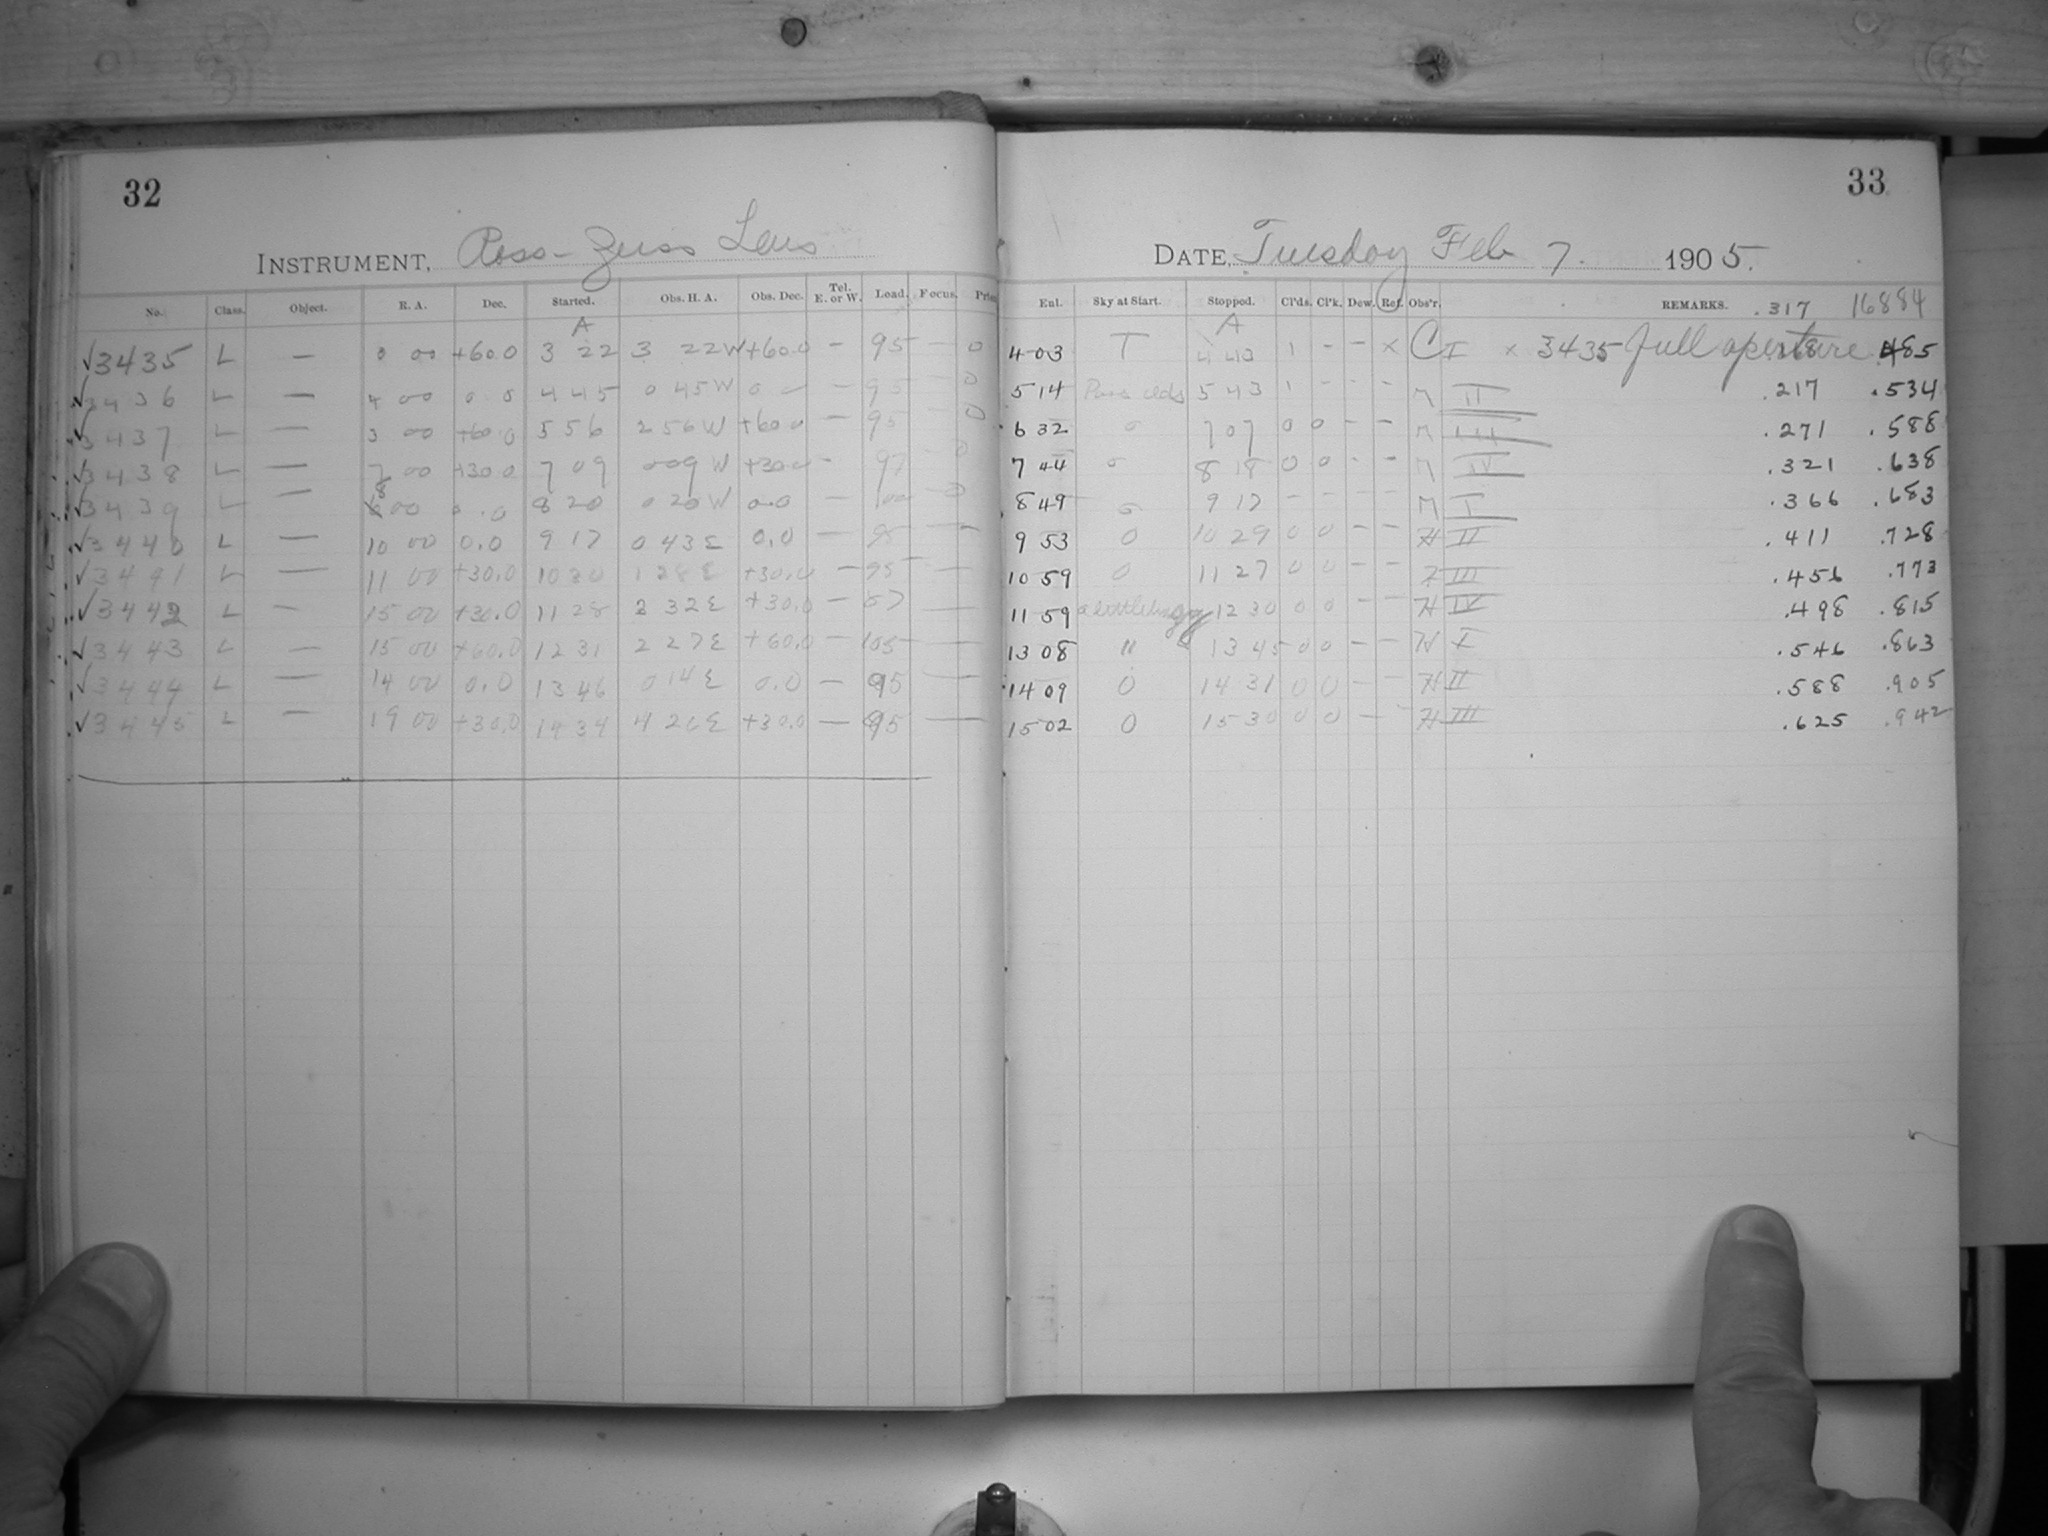 32
INSTRUMENT, Ross-Zeiss Lens
No. Class. Object. R. A. Dec. Started. Obs. H. A. Obs. Dec. Tel. E. or W. Load. Focus.
A
√3435 L — 0 00 +60.0 3 22 3 22W +60.0 — 95 — 0
√3436 L — 4 00 0.0 4 45 0 45W 0.0 — 95 — 0
√3437 L — 3 00 +60.0 5 56 2 56W +60.0 — 95 — 0
√3438 L — 7 00 +30.0 7 09 0 09W +30.0 — 97 — 0
√3439 L — 8 00 0.0 8 20 0 20W 0.0 — 100 — 0
√3440 L — 10 00 0.0 9 17 0 43E 0.0 — 95 — —
√3441 L — 11 00 +30.0 10 30 1 28E +30.0 — 95 —
√3442 L — 15 00 +30.0 11 28 2 32E +30.0 — 87 —
√3443 L — 15 00 +60.0 12 31 2 27E +60.0 — 105 —
√3444 L — 14 00 0.0 13 46 0 14E 0.0 — 95 —
√3445 L — 19 00 +30.0 14 34 4 26E +30.0 — 95 —
33
DATE, Tuesday Feb 7. 1905.
Eul. Sky at Start. Stopped. Cl'ds. Cl'k. Dew. Ref. Obs'r. REMARKS. .317 16884
A
4 03 T 4 43 1 - - × C I × 3435 full aperture .485
5 14 Pass clds 5 43 1 - - - M II .217 .534
6 32 0 7 07 0 0 - - M III .271 .588
7 44 0 8 18 0 0 - - M IV .321 .638
8 49 0 9 17 - - - - M I .366 .683
9 53 0 10 29 0 0 - - H II .411 .728
10 59 0 11 27 0 0 - - H III .456 .773
11 59 a little hazy 12 30 0 0 - - H IV .498 .815
13 08 " 13 45 0 0 - - H I .546 .863
14 09 0 14 31 0 0 - - H II .588 .905
15 02 0 15 30 0 0 - - H III .625 .942